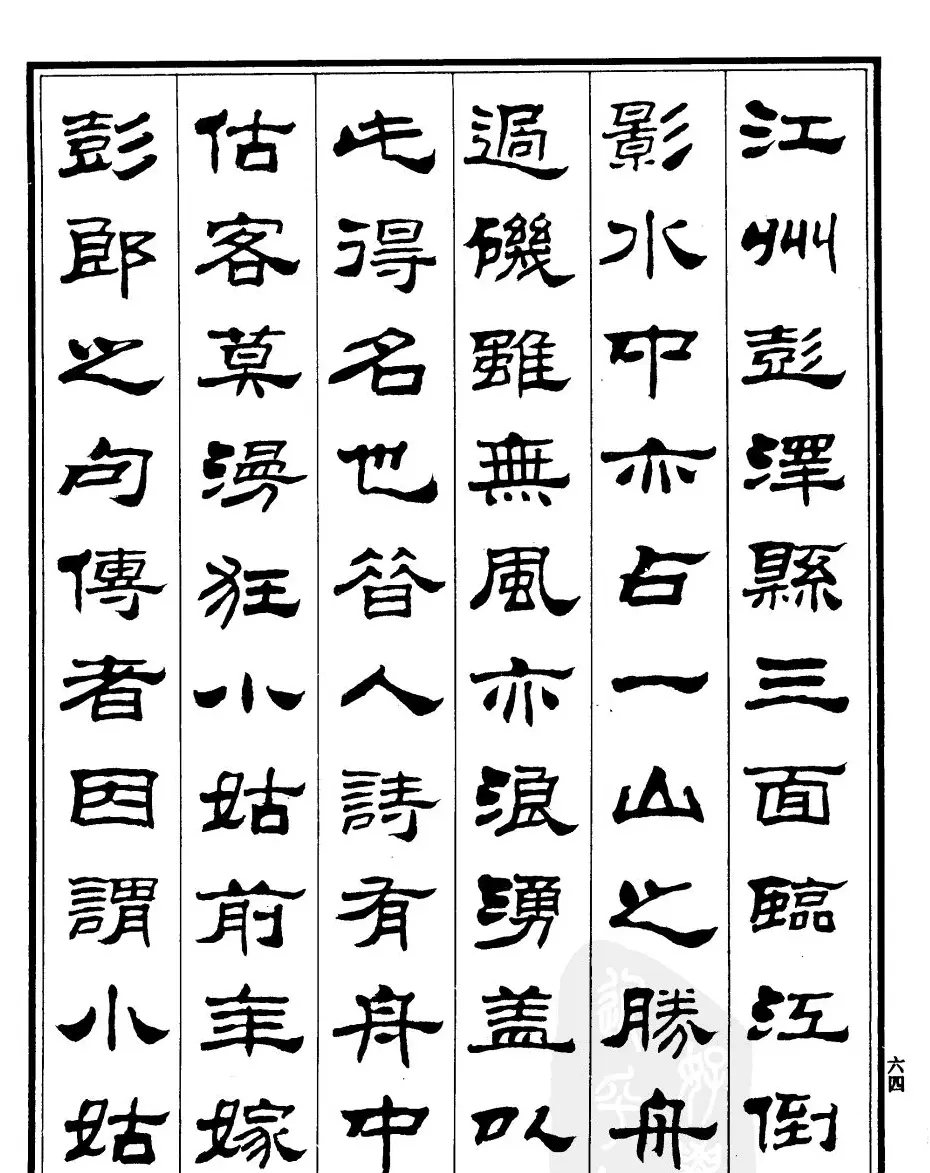 江州彭澤縣三面臨江倒
影水中亦占一山之勝舟
過磯雖無風亦浪湧盖以
此得名也昝人詩有舟中
估客莫漫狂小姑前年嫁
彭郎之句傳者因謂小姑
六四